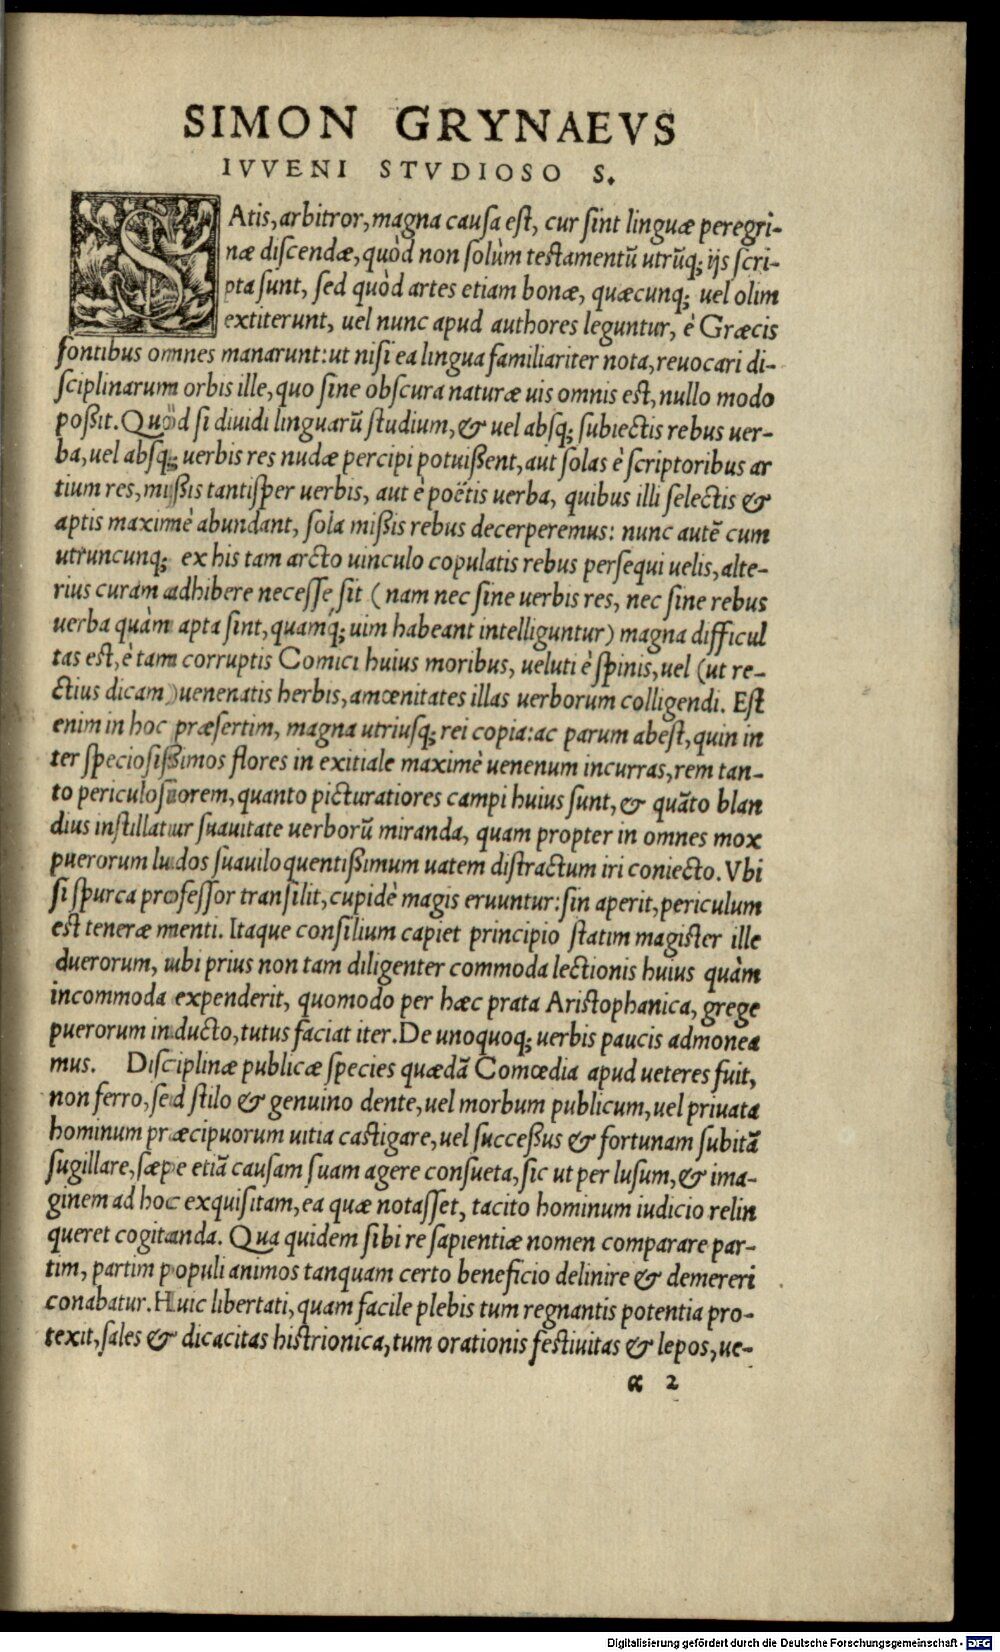 SIMON GRYNAEVS
IVVENI STVDIOSO S.
SAtis, arbitror, magna causa est, cur sint linguæ peregri-
næ discendæ, quòd non solùm testamentū utrūq; ijs scri-
pta sunt, sed quòd artes etiam bonæ, quæcunq; uel olim
extiterunt, uel nunc apud authores leguntur, è Græcis
fontibus omnes manarunt: ut nisi ea lingua familiariter nota, reuocari di-
sciplinarum orbis ille, quo sine obscura naturæ uis omnis est, nullo modo
poßit. Quòd si diuidi linguarū studium, & uel absq; subiectis rebus uer-
ba, uel absq; uerbis res nudæ percipi potuißent, aut solas è scriptoribus ar
tium res, mißis tantisper uerbis, aut è poëtis uerba, quibus illi selectis &
aptis maximè abundant, sola mißis rebus decerperemus: nunc autē cum
utruncunq; ex his tam arcto uinculo copulatis rebus persequi uelis, alte-
rius curam adhibere necesse sit (nam nec sine uerbis res, nec sine rebus
uerba quàm apta sint, quamq́; uim habeant intelliguntur) magna difficul
tas est, è tam corruptis Comici huius moribus, ueluti è spinis, uel (ut re-
ctius dicam) uenenatis herbis, amœnitates illas uerborum colligendi. Est
enim in hoc præsertim, magna utriusq; rei copia: ac parum abest, quin in
ter speciosißimos flores in exitiale maximè uenenum incurras, rem tan-
to periculosiorem, quanto picturatiores campi huius sunt, & quāto blan
dius instillatur suauitate uerborū miranda, quam propter in omnes mox
puerorum ludos suauiloquentißimum uatem distractum iri coniecto. Vbi
si spurca professor transilit, cupidè magis eruuntur: sin aperit, periculum
est teneræ menti. Itaque consilium capiet principio statim magister ille
duerorum, ubi prius non tam diligenter commoda lectionis huius quàm
incommoda expenderit, quomodo per hæc prata Aristophanica, grege
puerorum inducto, tutus faciat iter. De unoquoq; uerbis paucis admonea
mus. Disciplinæ publicæ species quædā Comœdia apud ueteres fuit,
non ferro, sed stilo & genuino dente, uel morbum publicum, uel priuata
hominum præcipuorum uitia castigare, uel succeßus & fortunam subitā
sugillare, sæpe etiā causam suam agere consueta, sic ut per lusum, & ima-
ginem ad hoc exquisitam, ea quæ notasset, tacito hominum iudicio relin
queret cogitanda. Qua quidem sibi re sapientiæ nomen comparare par-
tim, partim populi animos tanquam certo beneficio delinire & demereri
conabatur. Huic libertati, quam facile plebis tum regnantis potentia pro-
texit, sales & dicacitas histrionica, tum orationis festiuitas & lepos, ue-
α 2
Digitalisierung gefördert durch die Deutsche Forschungsgemeinschaft - DFG